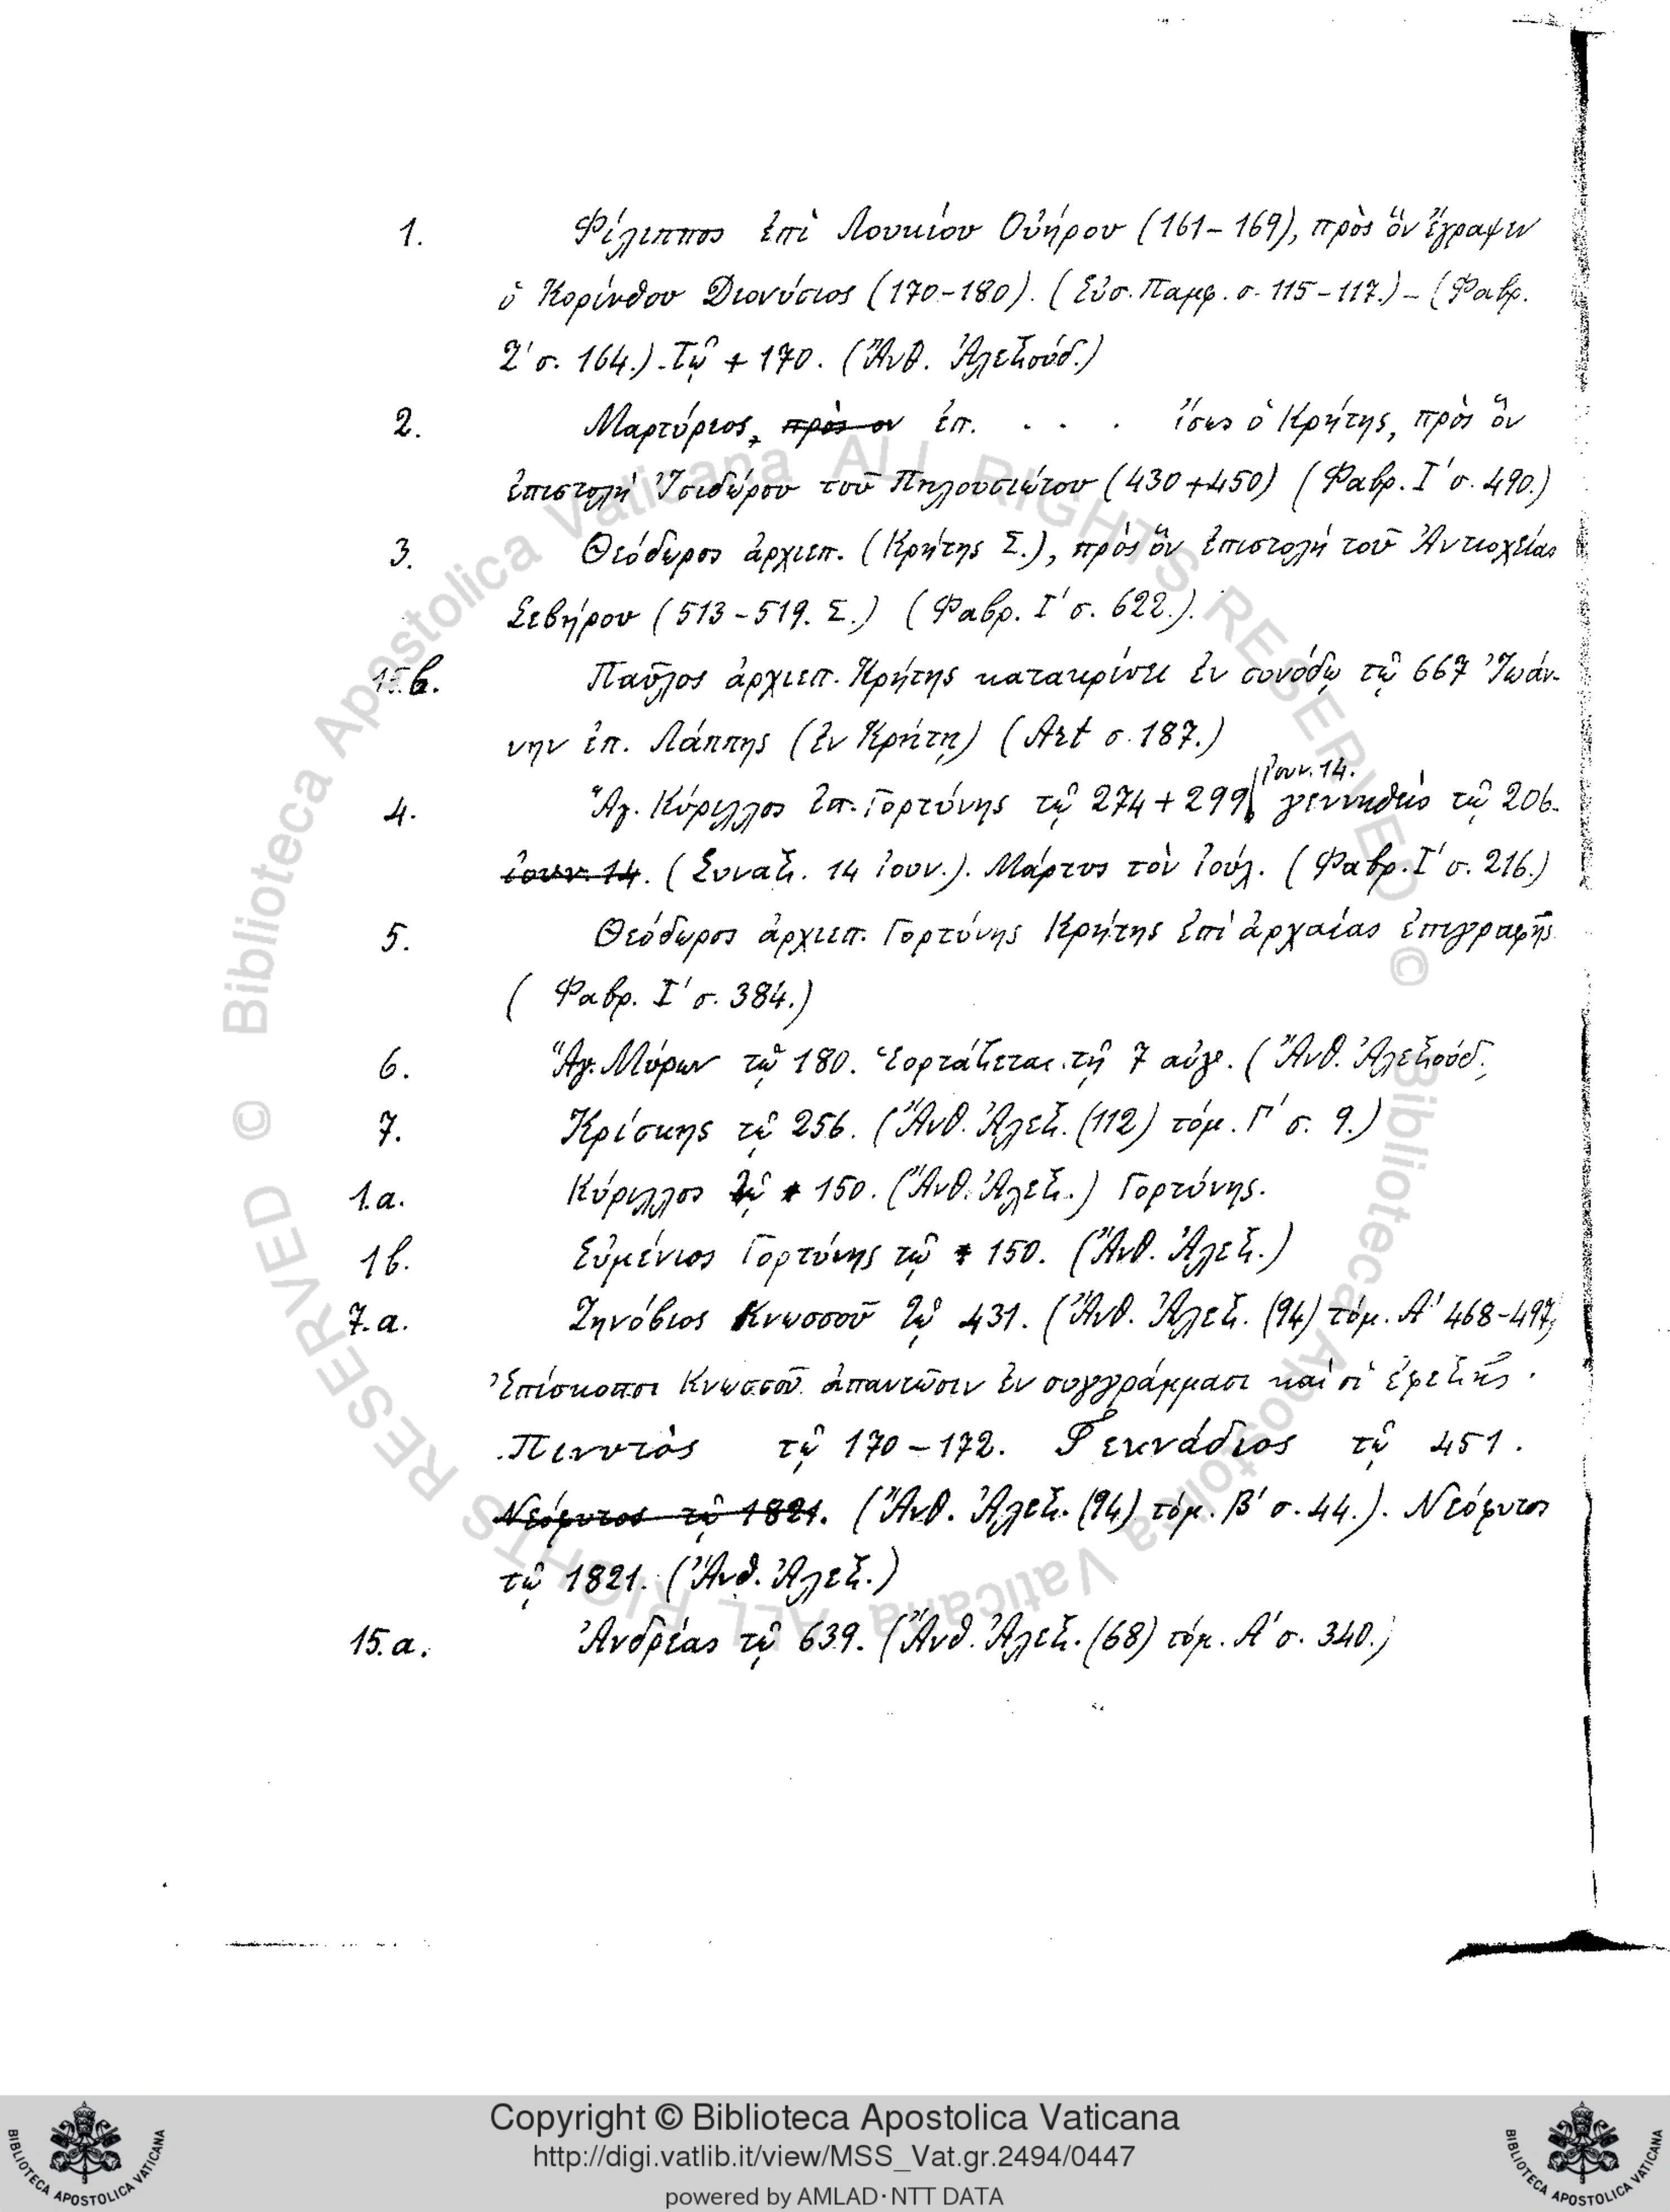 1. Φίλιππος ἐπὶ Λουκίου Οὐήρου (161-169), πρὸς ὃν ἔγραψεν
ὁ Κορίνθου Διονύσιος (170-180). (Εὐσ. Παμφ. σ. 115-117.) - (Φαβρ.
Ζ' σ. 164.). Τῷ + 170. (Ἄνθ. Ἀλεξούδ.)
2. Μαρτύριος, πρὸς ον ἐπ. . . . ἴσως ὁ Κρήτης, πρὸς ὃν
ἐπιστολὴ Ἰσιδώρου τοῦ Πηλουσιώτου (430+450) (Φαβρ. Ι' σ. 490.)
3. Θεόδωρος ἀρχιεπ. (Κρήτης Σ.), πρὸς ὃν ἐπιστολὴ τοῦ Ἀντιοχείας
Σεβήρου (513-519. Σ.) (Φαβρ. Ι' σ. 622.).
15.β. Παῦλος ἀρχιεπ. Κρήτης κατακρίνει ἐν συνόδῳ τῷ 667 Ἰωάν-
νην ἐπ. Λάππης (ἐν Κρήτῃ) (Art σ. 187.)
ἰουν. 14.
4. Ἅγ. Κύριλλος ἐπ. Γορτύνης τῷ 274 + 299 γεννηθεὶς τῷ 206.
ἰουν. 14. (Συναξ. 14 ἰουν.). Μάρτυς τὸν ἰούλ. (Φαβρ. Ι' σ. 216.)
5. Θεόδωρος ἀρχιεπ. Γορτύνης Κρήτης ἐπὶ ἀρχαίας ἐπιγραφῆς
(Φαβρ. Ι' σ. 384.)
6. Ἅγ. Μύρων τῷ 180. Ἑορτάζεται τῇ 7 αὐγ. (Ἄνθ. Ἀλεξούδ.
7. Κρίσκης τῷ 256. (Ἄνθ. Ἀλεξ. (112) τόμ. Γ' σ. 9.)
1.α. Κύριλλος τῷ 150. (Ἄνθ. Ἀλεξ.) Γορτύνης.
1β. Εὐμένιος Γορτύνης τῷ 150. (Ἄνθ. Ἀλεξ.)
7.α. Ζηνόβιος Κνωσσοῦ τῷ 431. (Ἄνθ. Ἀλεξ. (94) τόμ. Α' 468-497,
Ἐπίσκοποι Κνωσσοῦ ἀπαντῶσιν ἐν συγγράμμασι καὶ οἱ ἐφεξῆς.
Πινυτὸς τῷ 170-172. Γεννάδιος τῷ 451.
Νεόφυτος τῷ 1821. (Ἄνθ. Ἀλεξ. (94) τόμ. Β' σ. 44.). Νεόφυτος
τῷ 1821. (Ἄνθ. Ἀλεξ.)
15.α. Ἀνδρέας τῷ 639. (Ἄνθ. Ἀλεξ. (68) τόμ. Α' σ. 340.)
© Biblioteca Apostolica Vaticana ALL RIGHTS RESERVED © Biblioteca Apostolica Vaticana ALL RIGHTS RESERVED
Copyright © Biblioteca Apostolica Vaticana
http://digi.vatlib.it/view/MSS_Vat.gr.2494/0447
powered by AMLAD·NTT DATA
BIBLIOTECA APOSTOLICA VATICANA
BIBLIOTECA APOSTOLICA VATICANA